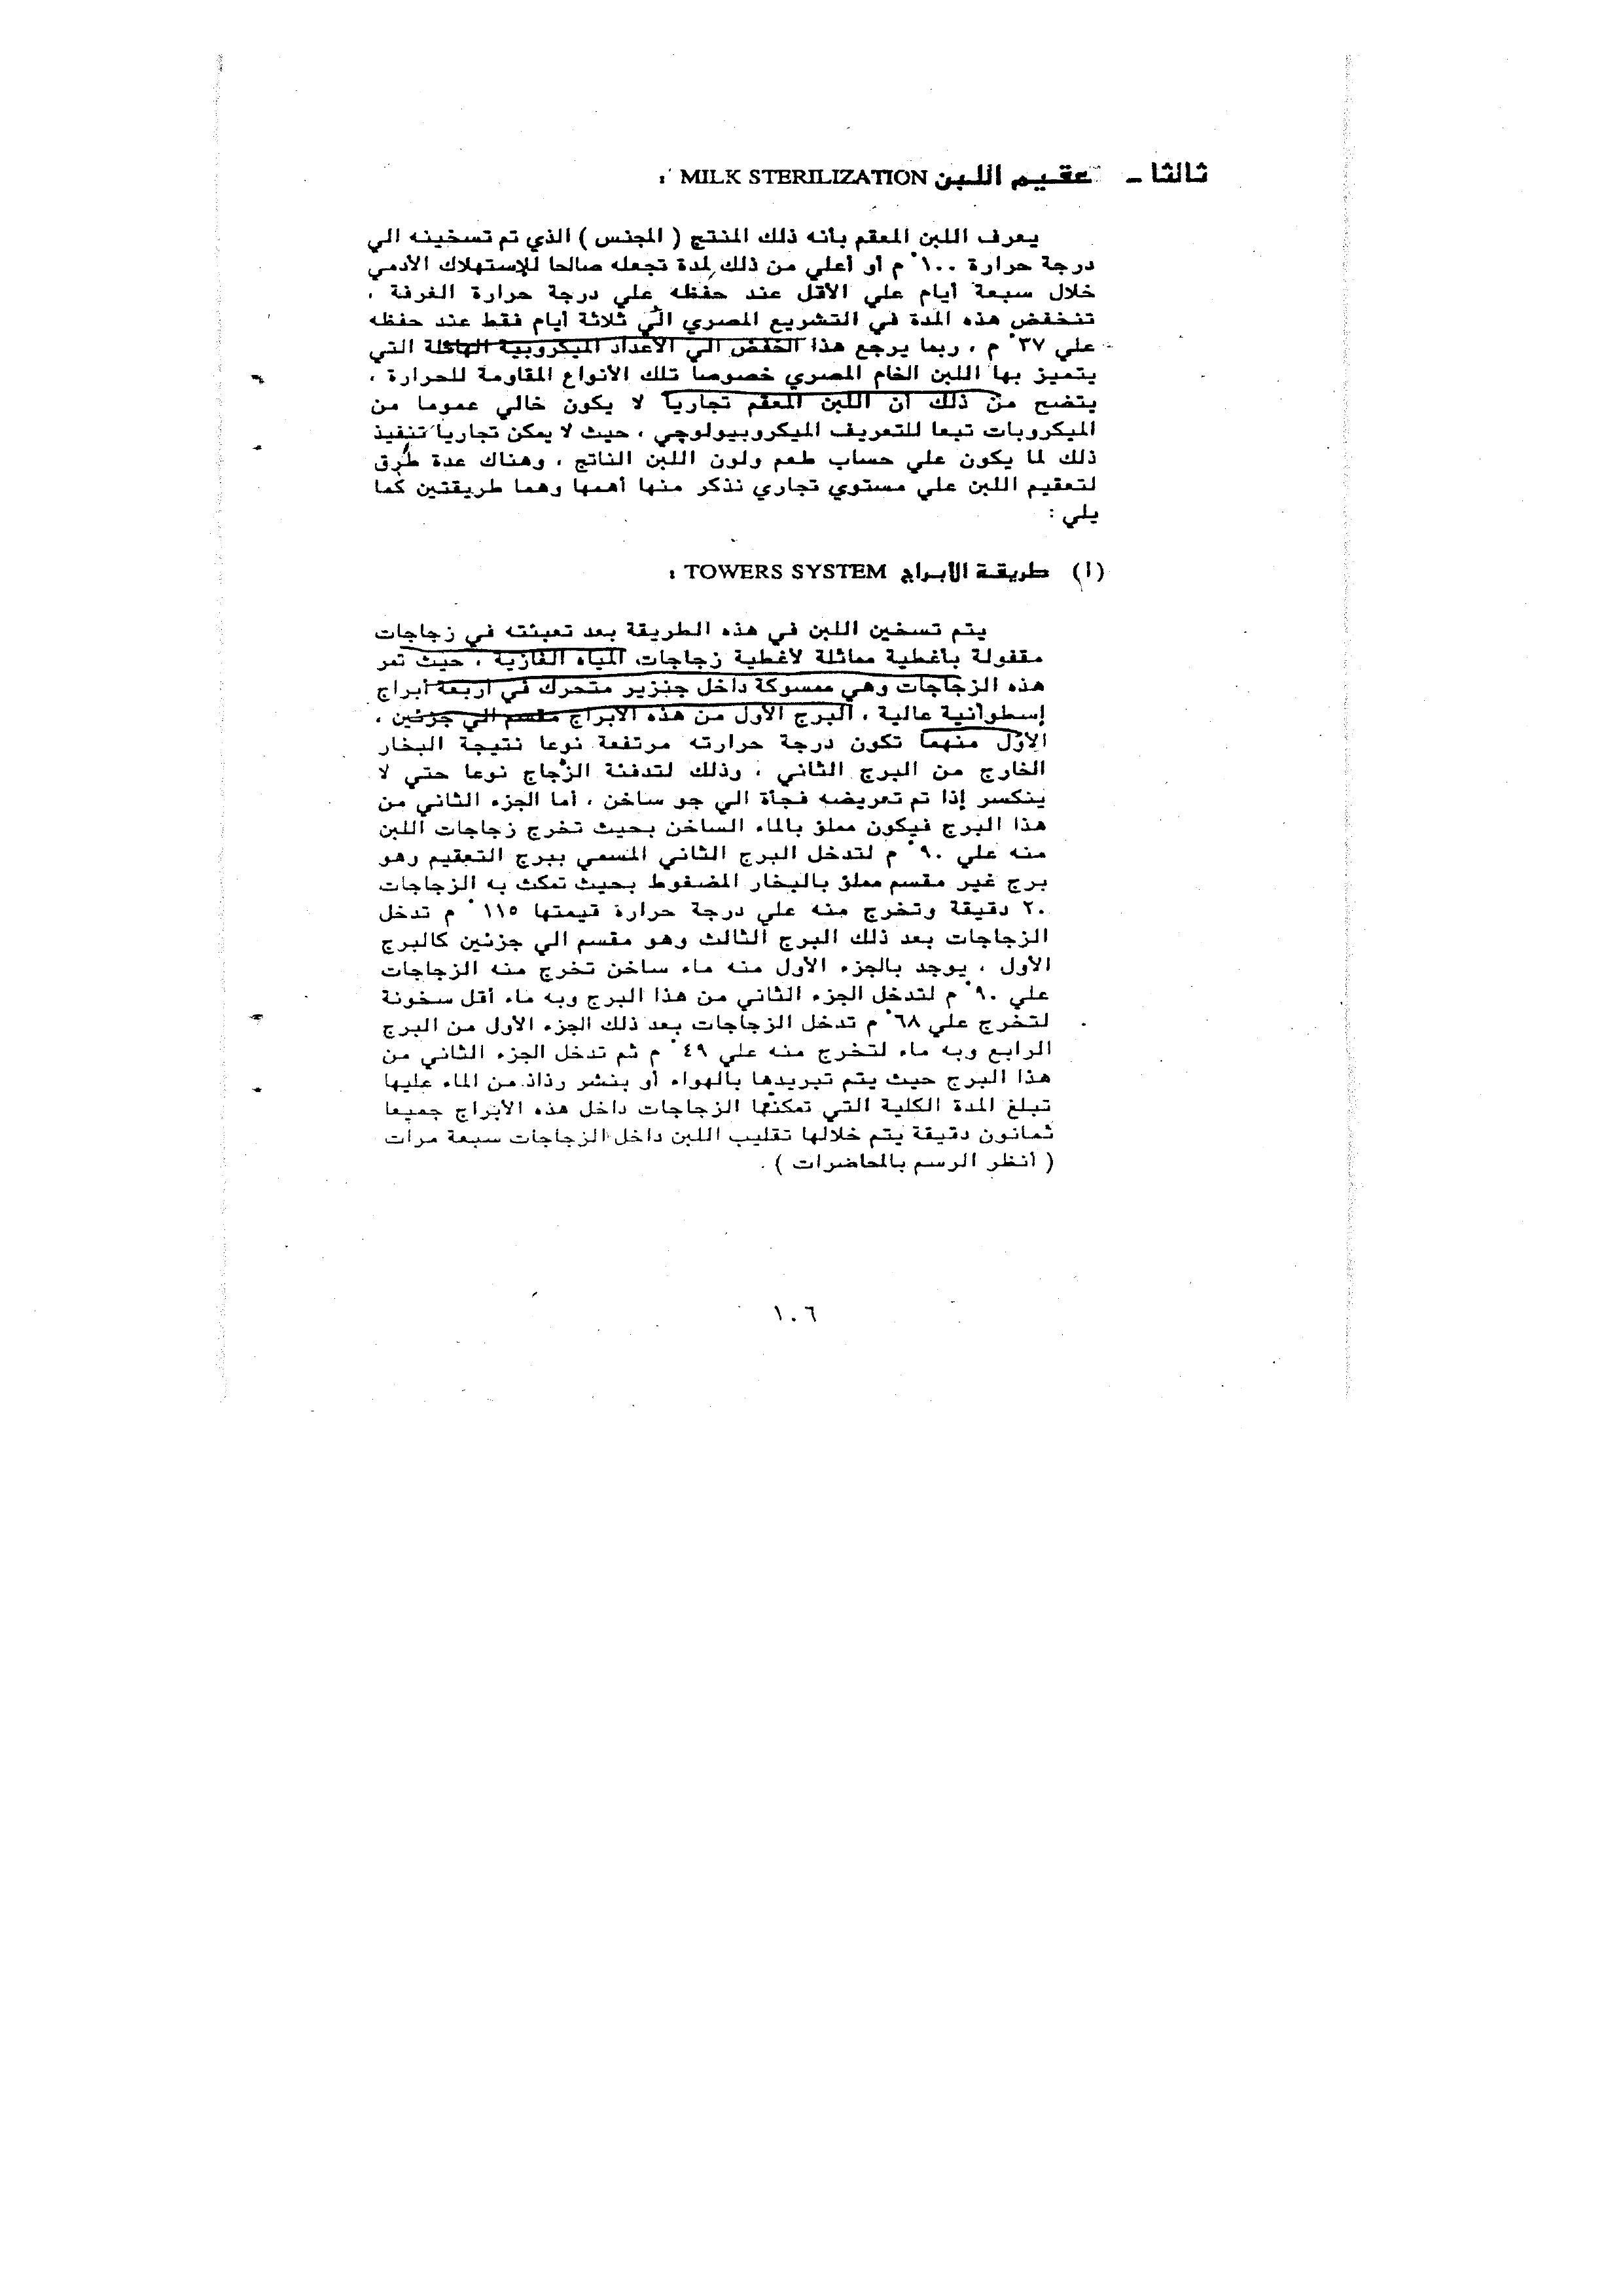 ثالثا - تعقيم اللبن MILK STERILIZATION :
يعرف اللبن المعقم بأنه ذلك المنتج ( المجنس ) الذي تم تسخينه الي
درجة حرارة ١٠٠° م أو أعلي من ذلك لمدة تجعله صالحا للإستهلاك الأدمي
خلال سبعة أيام علي الأقل عند حفظه علي درجة حرارة الغرفة ،
تنخفض هذه المدة في التشريع المصري الي ثلاثة أيام فقط عند حفظه
علي ٣٧° م ، ربما يرجع هذا الخفض الي الأعداد الميكروبية الهائلة التي
يتميز بها اللبن الخام المصري خصوصا تلك الأنواع المقاومة للحرارة ،
يتضح من ذلك أن اللبن المعقم تجاريا لا يكون خالي عموما من
الميكروبات تبعا للتعريف الميكروبيولوجي ، حيث لا يمكن تجاريا تنفيذ
ذلك لما يكون علي حساب طعم ولون اللبن الناتج ، وهناك عدة طرق
لتعقيم اللبن علي مستوي تجاري نذكر منها أهمها وهما طريقتين كما
يلي :
(أ) طريقة الأبراج TOWERS SYSTEM :
يتم تسخين اللبن في هذه الطريقة بعد تعبئته في زجاجات
مقفولة بأغطية مماثلة لأغطية زجاجات المياه الغازية ، حيث تمر
هذه الزجاجات وهي ممسوكة داخل جنزير متحرك في أربعة أبراج
إسطوانية عالية ، البرج الأول من هذه الأبراج مقسم الي جزئين ،
الأول منهما تكون درجة حرارته مرتفعة نوعا نتيجة البخار
الخارج من البرج الثاني ، وذلك لتدفئة الزجاج نوعا حتي لا
ينكسر إذا تم تعريضه فجأة الي جو ساخن ، أما الجزء الثاني من
هذا البرج فيكون مملؤ بالماء الساخن بحيث تخرج زجاجات اللبن
منه علي ٩٠° م لتدخل البرج الثاني المسمي ببرج التعقيم وهو
برج غير مقسم مملؤ بالبخار المضغوط بحيث تمكث به الزجاجات
٢٠ دقيقة وتخرج منه علي درجة حرارة قيمتها ١١٥° م تدخل
الزجاجات بعد ذلك البرج الثالث وهو مقسم الي جزئين كالبرج
الأول ، يوجد بالجزء الأول منه ماء ساخن تخرج منه الزجاجات
علي ٩٠° م لتدخل الجزء الثاني من هذا البرج وبه ماء أقل سخونة
لتخرج علي ٦٨° م تدخل الزجاجات بعد ذلك الجزء الأول من البرج
الرابع وبه ماء لتخرج منه علي ٤٩° م ثم تدخل الجزء الثاني من
هذا البرج حيث يتم تبريدها بالهواء أو بنشر رذاذ من الماء عليها
تبلغ المدة الكلية التي تمكثها الزجاجات داخل هذه الأبراج جميعا
ثمانون دقيقة يتم خلالها تقليب اللبن داخل الزجاجات سبعة مرات
( أنظر الرسم بالمحاضرات ) .
١٠٦